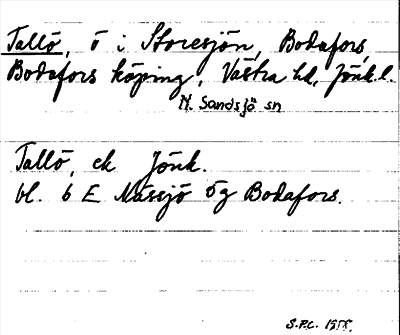 Tallö, ö i Storesjön, Bodafors,
Bodafors köping, Västra hd, Jönk. l.
N. Sandsjö sn
Tallö, ek Jönk.
bl. 6 E Nässjö ög Bodafors.
S.P.C. 1958.